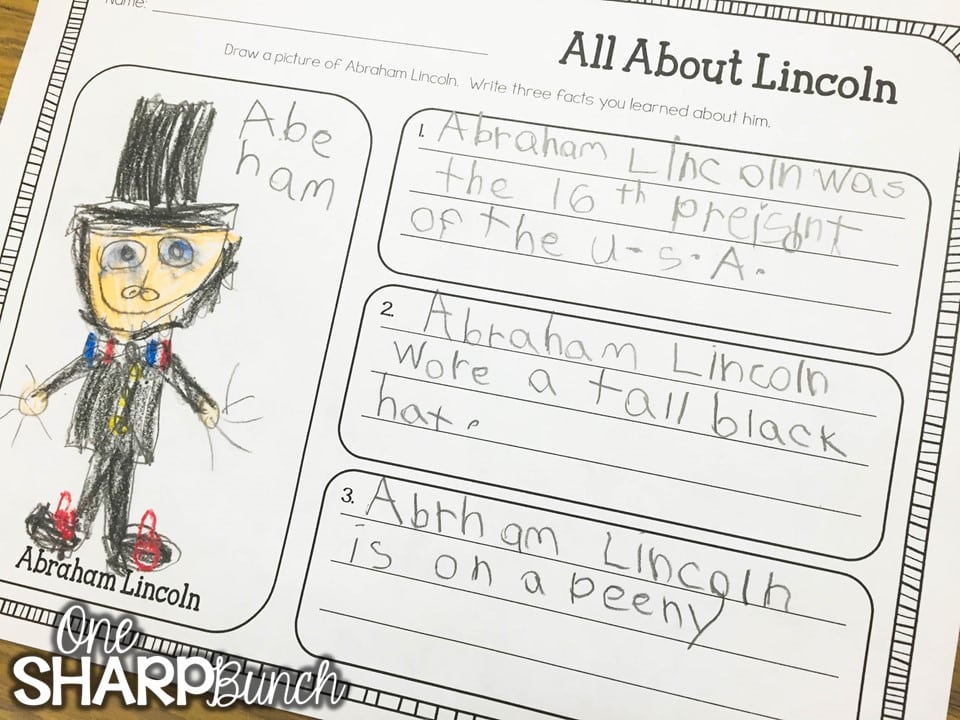 Name:
All About Lincoln
Draw a picture of Abraham Lincoln. Write three facts you learned about him.
Abe
ham
Abraham Lincoln
1. Abraham Lincoln was
the 16th prejsdnt
of the U.S.A.
2. Abraham Lincoln
wore a tall black
hat.
3. Abrham Lincoln
is on a peeny
One
SHARP Bunch